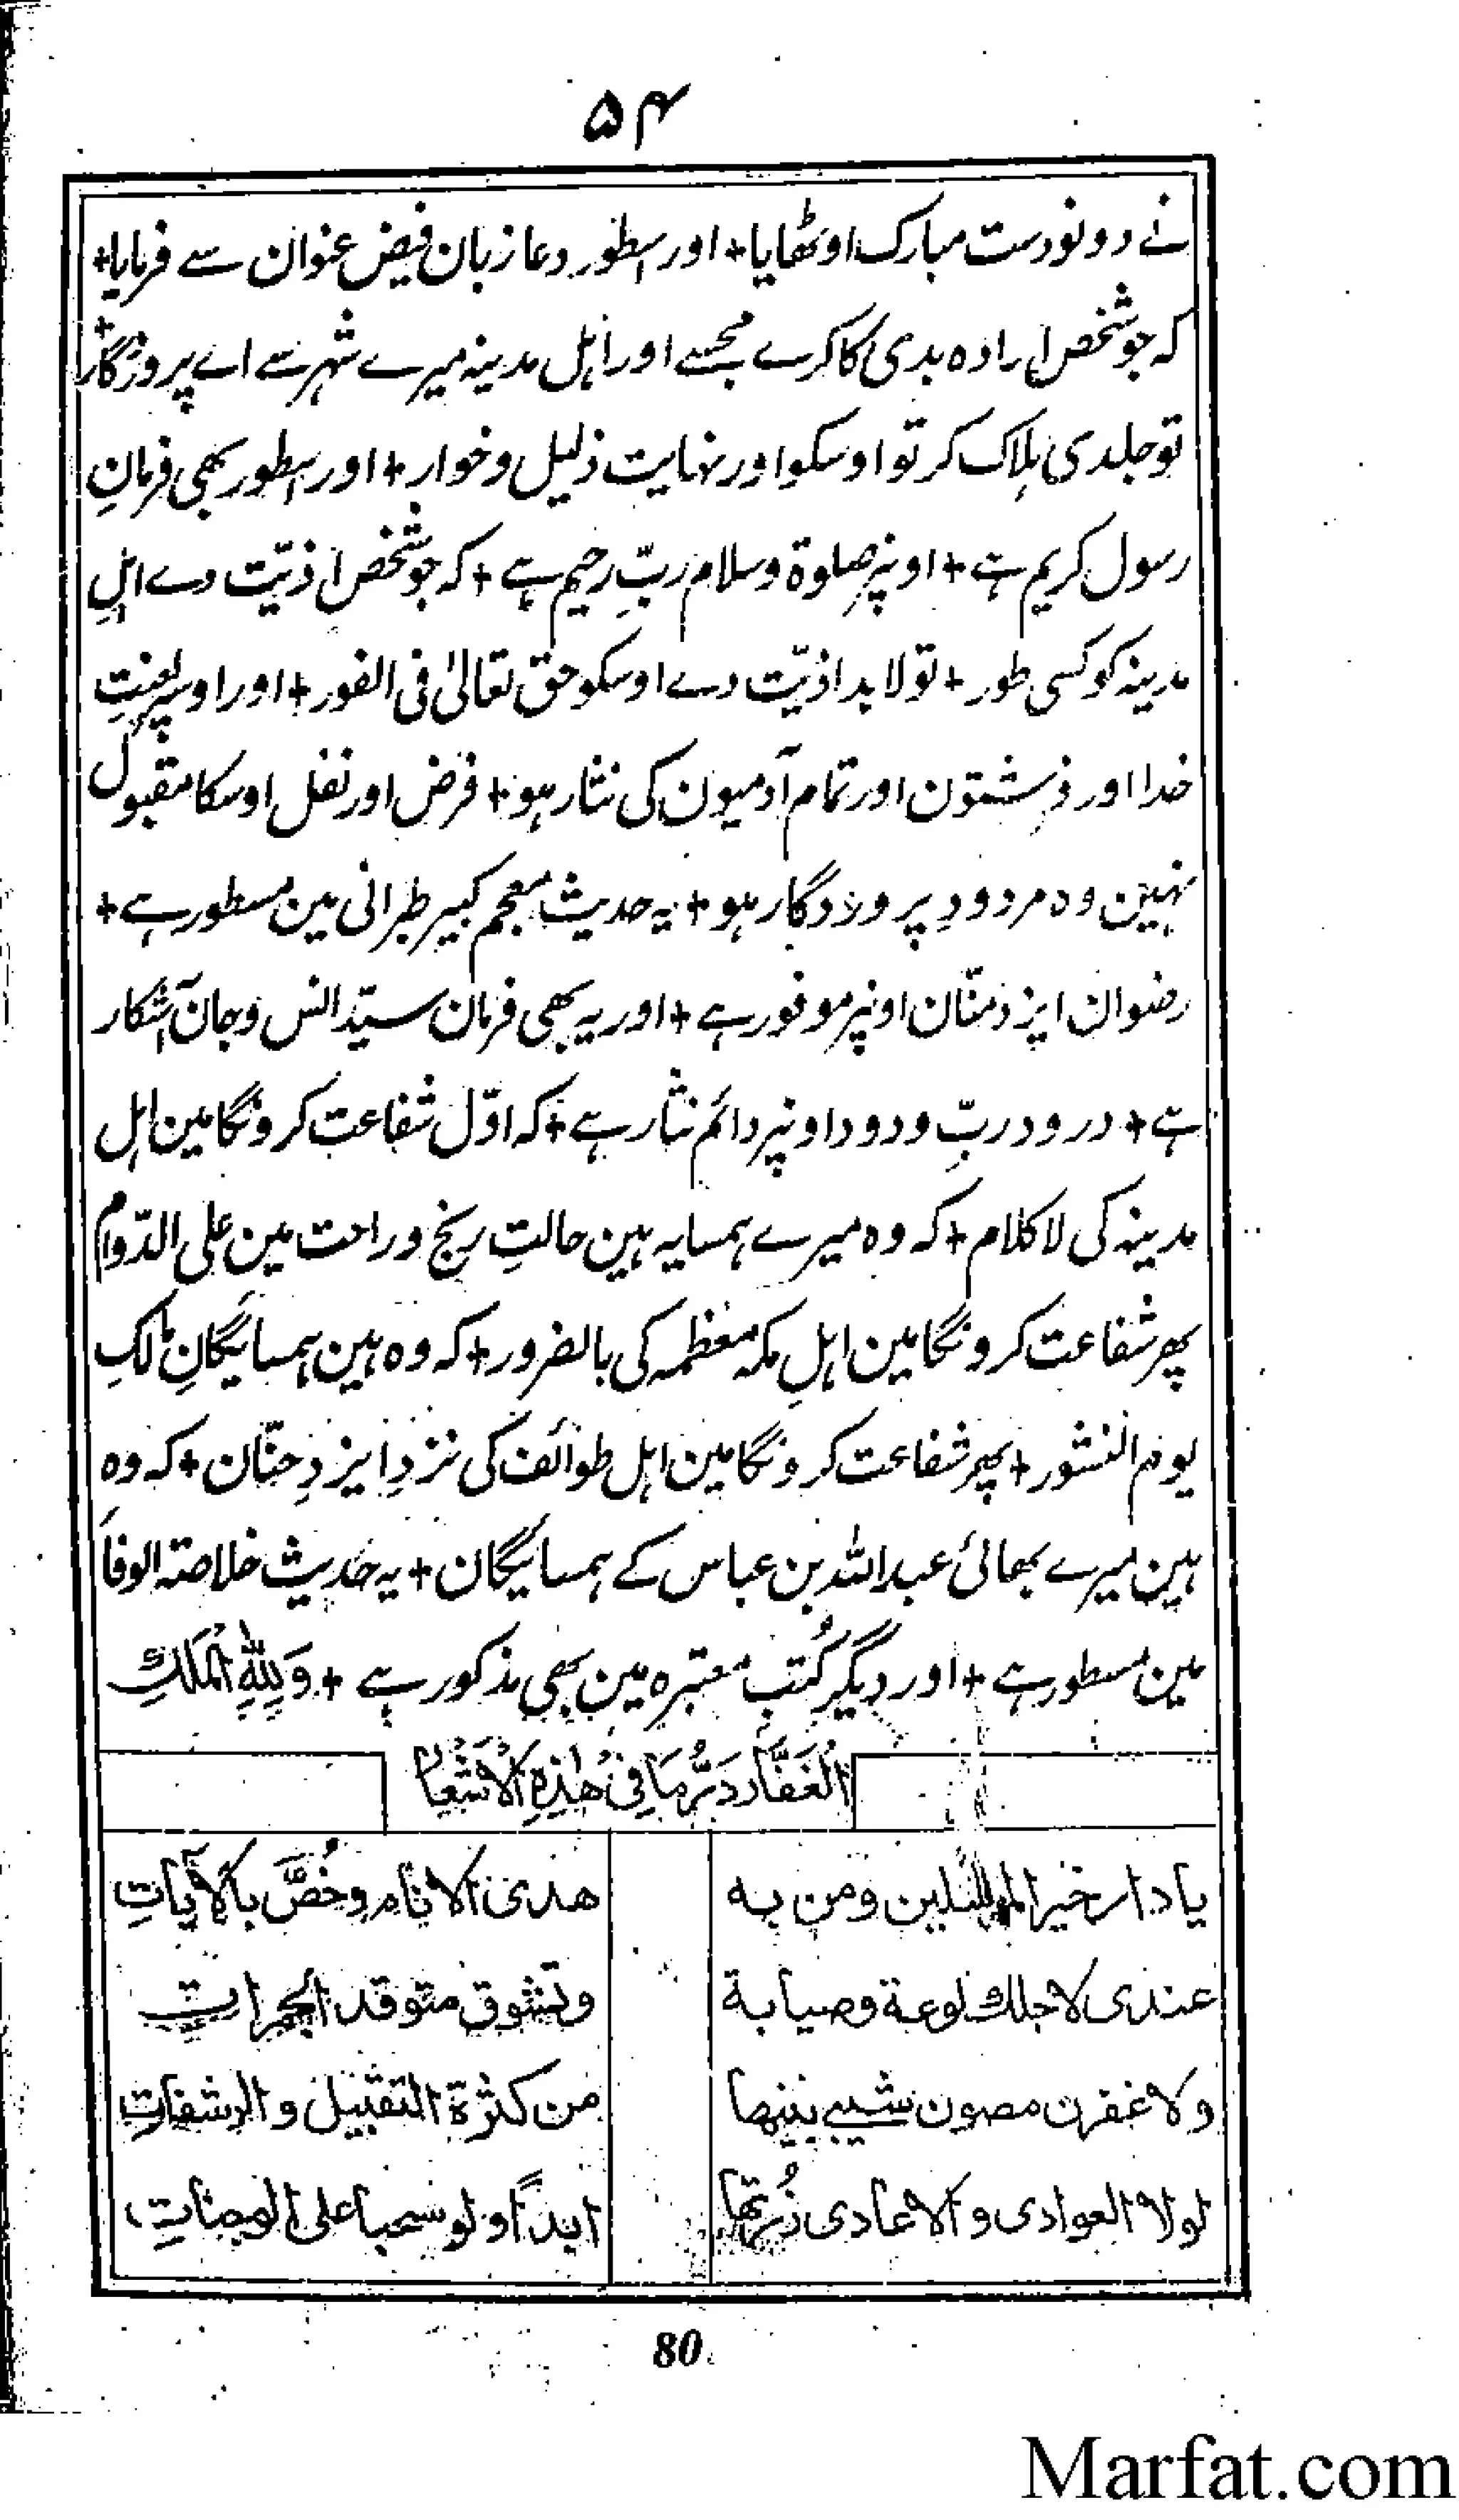 ۵۴
نے دونو دست مبارک اوٹھایا + اور اسطور دعا زبان فیض عنوان سے فرمایا +
کہ جو شخص ارادہ بدی کا کرے مجھسے اور اہل مدینہ میرے شہر سے اے پروردگار +
تو جلدی ہلاک کر تو اوسکو اور نہایت ذلیل و خوار + اور اسطور بھی فرمانِ
رسول کریم ہے + اونپر صلوة وسلام ربِّ رحیم ہے + کہ جو شخص اذیّت دے اہلِ
مدینہ کو کسی طور + تو لابد اذیّت دے اوسکو حق تعالیٰ فی الفور + اور اوسپر لعنتِ
خدا اور فرشتون اور تمام آدمیون کی نثار ہو + فرض اور نفل اوسکا مقبول
نہین وہ مردودِ پروردگار ہو + یہ حدیث معجم کبیر طبرانی مین مسطور ہے +
رضوان ایزد منّان اونپر موفور ہے + اور یہ بھی فرمان سیّد انس وجان آشکار
ہے + درود ربِّ ودود اونپر دائم نثار ہے + کہ اوّل شفاعت کرونگا مین اہل
مدینہ کی لاکلام + کہ وہ میرے ہمسایہ ہین حالتِ رنج وراحت مین علی الدّوام
پھر شفاعت کرونگا مین اہلِ مکہ معظمہ کی بالضرور + کہ وہ ہین ہمسائگانِ مالکِ
یوم النشور + پھر شفاعت کرونگا مین اہل طوائف کی نزدِ ایزدِ حنّان + کہ وہ
ہین میرے بھائی عبد اللہ بن عباس کے ہمسائیگان + یہ حدیث خلاصۃ الوفا
مین مسطور ہے + اور دیگر کُتب معتبرہ مین بھی مذکور ہے + وَلِلّٰهِ الْمَلِكِ
الْغَفَّارِ دَرُّ مَا فِیْ هٰذِهِ الْاَشْعَارِ
یا دار خیر المرسلین ومن به هدی الانام وخُصَّ بالاٰیاتِ
عندی لاجلك لوعة وصبابة وتشوق متوقد الجمراتِ
ولاغفرن مصون شیبی بینها من کثرة التقبیل والرشفاتِ
لولا العوادی والاعادی زُرتها ابداً ولو سحبا علی الوجناتِ
80
Marfat.com